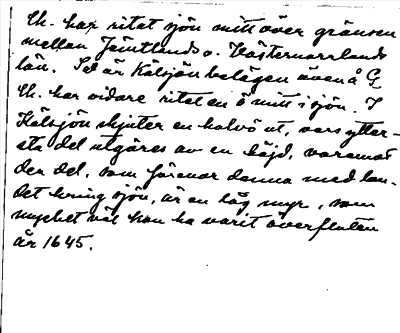 Uh. har ritat sjön mitt över gränsen
mellan Jämtlands o. Västernorrlands
län. Så är Kälsjön belägen även å G
Uh. har vidare ritat en ö mitt i sjön. I
Kälsjön skjuter en halvö ut, vars ytter-
sta del utgöres av en höjd, varemot
den del, som förenar denna med lan-
det kring sjön, är en låg myr, som
mycket väl kan ha varit överfluten
år 1645.